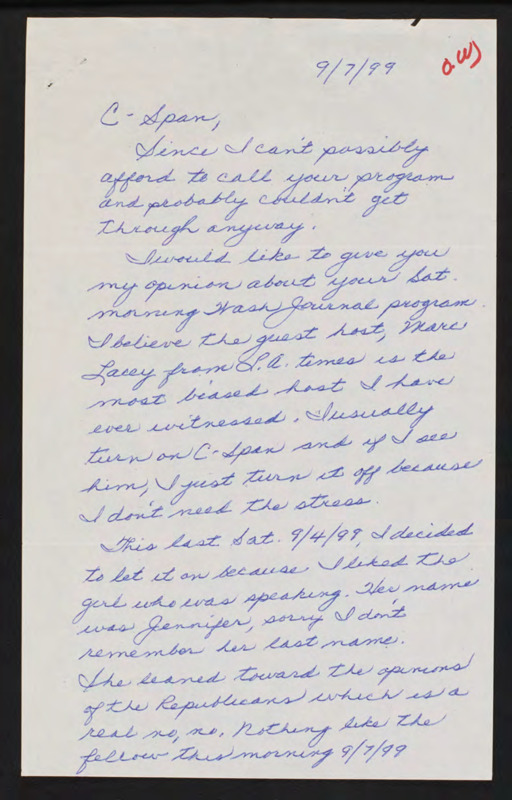 9/7/99
C-Span,
Since I can't possibly
afford to call your program
and probably couldn't get
through anyway.
I would like to give you
my opinion about your Sat.
morning Wash Journal program.
I believe the guest host, Marc
Lacey from L.A. times is the
most biased host I have
ever witnessed. I usually
turn on C-Span and if I see
him, I just turn it off because
I don't need the stress.
This last Sat. 9/4/99, I decided
to let it on because I liked the
girl who was speaking. Her name
was Jennifer, sorry I don't
remember her last name.
She leaned toward the opinions
of the Republicans which is a
real no, no. Nothing like the
fellow this morning 9/7/99